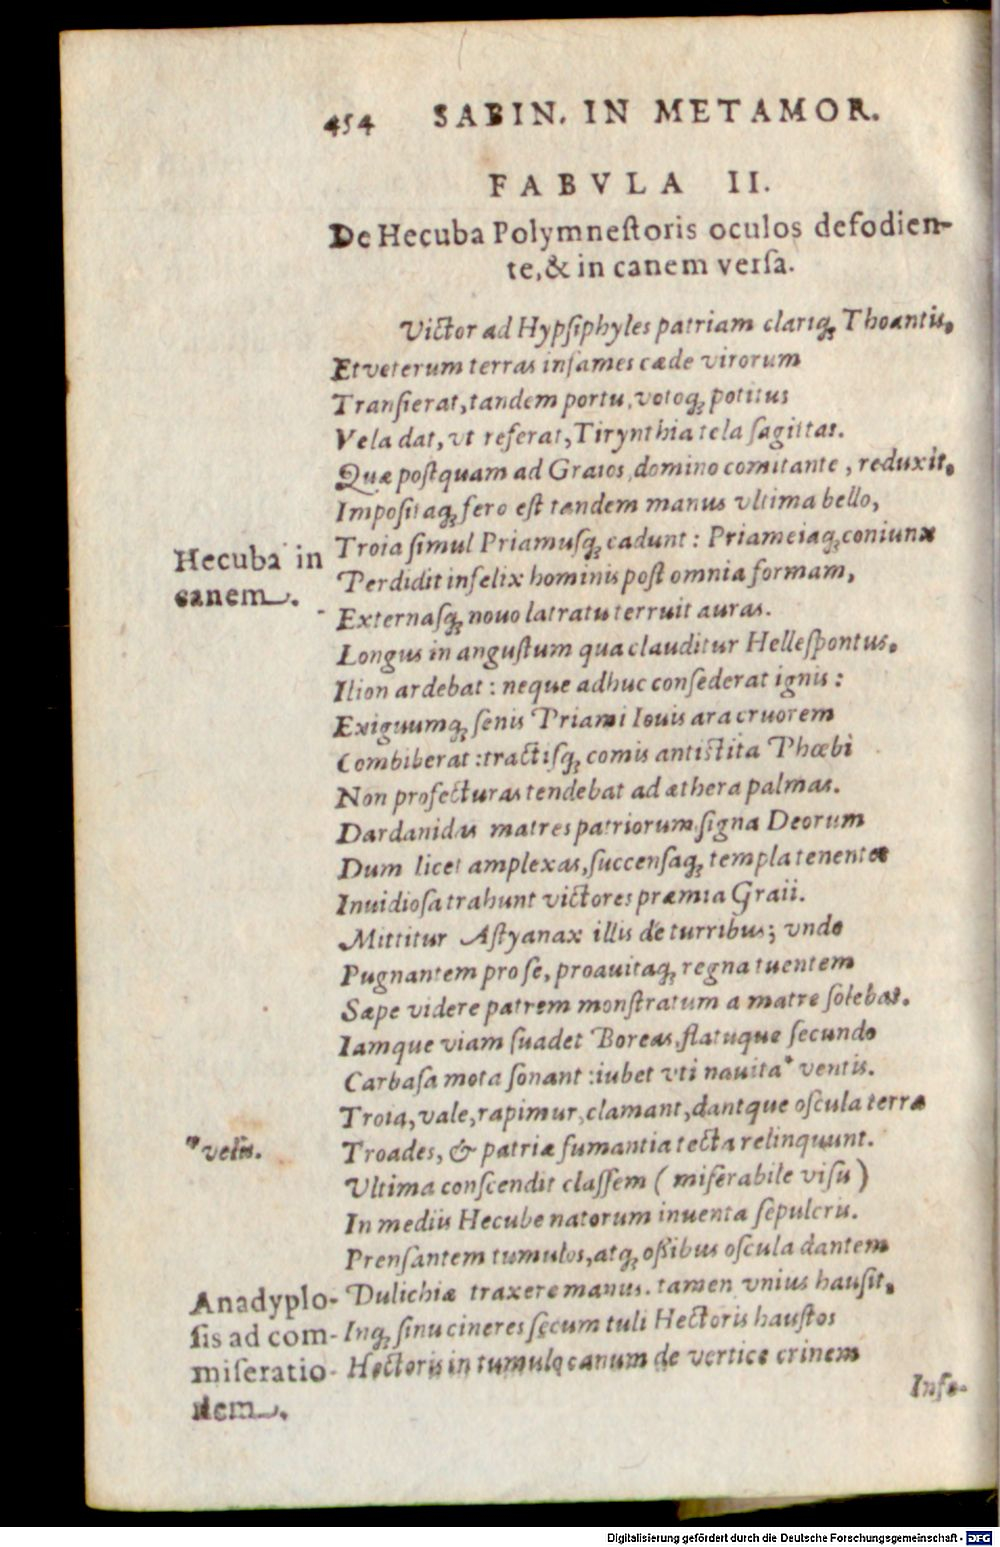 454 SABIN. IN METAMOR.
FABVLA II.
De Hecuba Polymneſtoris oculos defodien-
te, & in canem verſa.
Victor ad Hypſiphyles patriam clariq; Thoantis,
Et veterum terras infames cæde virorum
Tranſierat, tandem portu, votoq; potitus
Vela dat, vt referat, Tirynthia tela ſagittas.
Quæ poſtquam ad Graios, domino comitante, reduxit,
Impoſitaq; fero eſt tandem manus vltima bello,
Troia ſimul Priamuſq; cadunt: Priameiaq; coniunx
Perdidit infelix hominis poſt omnia formam,
Externaſq; nouo latratu terruit auras.
Hecuba in
canem.
Longus in anguſtum qua clauditur Helleſpontus,
Ilion ardebat: neque adhuc conſederat ignis:
Exiguumq; ſenis Priami Iouis ara cruorem
Combiberat: tractiſq; comis antiſtita Phœbi
Non profecturas tendebat ad æthera palmas.
Dardanidas matres patriorum ſigna Deorum
Dum licet amplexas, ſuccenſaq; templa tenentes
Inuidioſa trahunt victores præmia Graii.
Mittitur Aſtyanax illis de turribus; vnde
Pugnantem pro ſe, proauitaq; regna tuentem
Sæpe videre patrem monſtratum a matre ſolebat.
Iamque viam ſuadet Boreas, flatuque ſecundo
Carbaſa mota ſonant: iubet vti nauita* ventis.
Troia, vale, rapimur, clamant, dantque oſcula terræ
Troades, & patriæ fumantia tecta relinquunt.
*velis.
Vltima conſcendit claſſem ( miſerabile viſu )
In mediis Hecube natorum inuenta ſepulcris.
Prenſantem tumulos, atq; oſſibus oſcula dantem
Dulichiæ traxere manus. tamen vnius hauſit,
Inq; ſinu cineres ſecum tuli Hectoris hauſtos
Hectoris in tumulo canum de vertice crinem
Anadyplo-
ſis ad com-
miſeratio-
nem.
Infe-
Digitalisierung gefördert durch die Deutsche Forschungsgemeinschaft - DFG